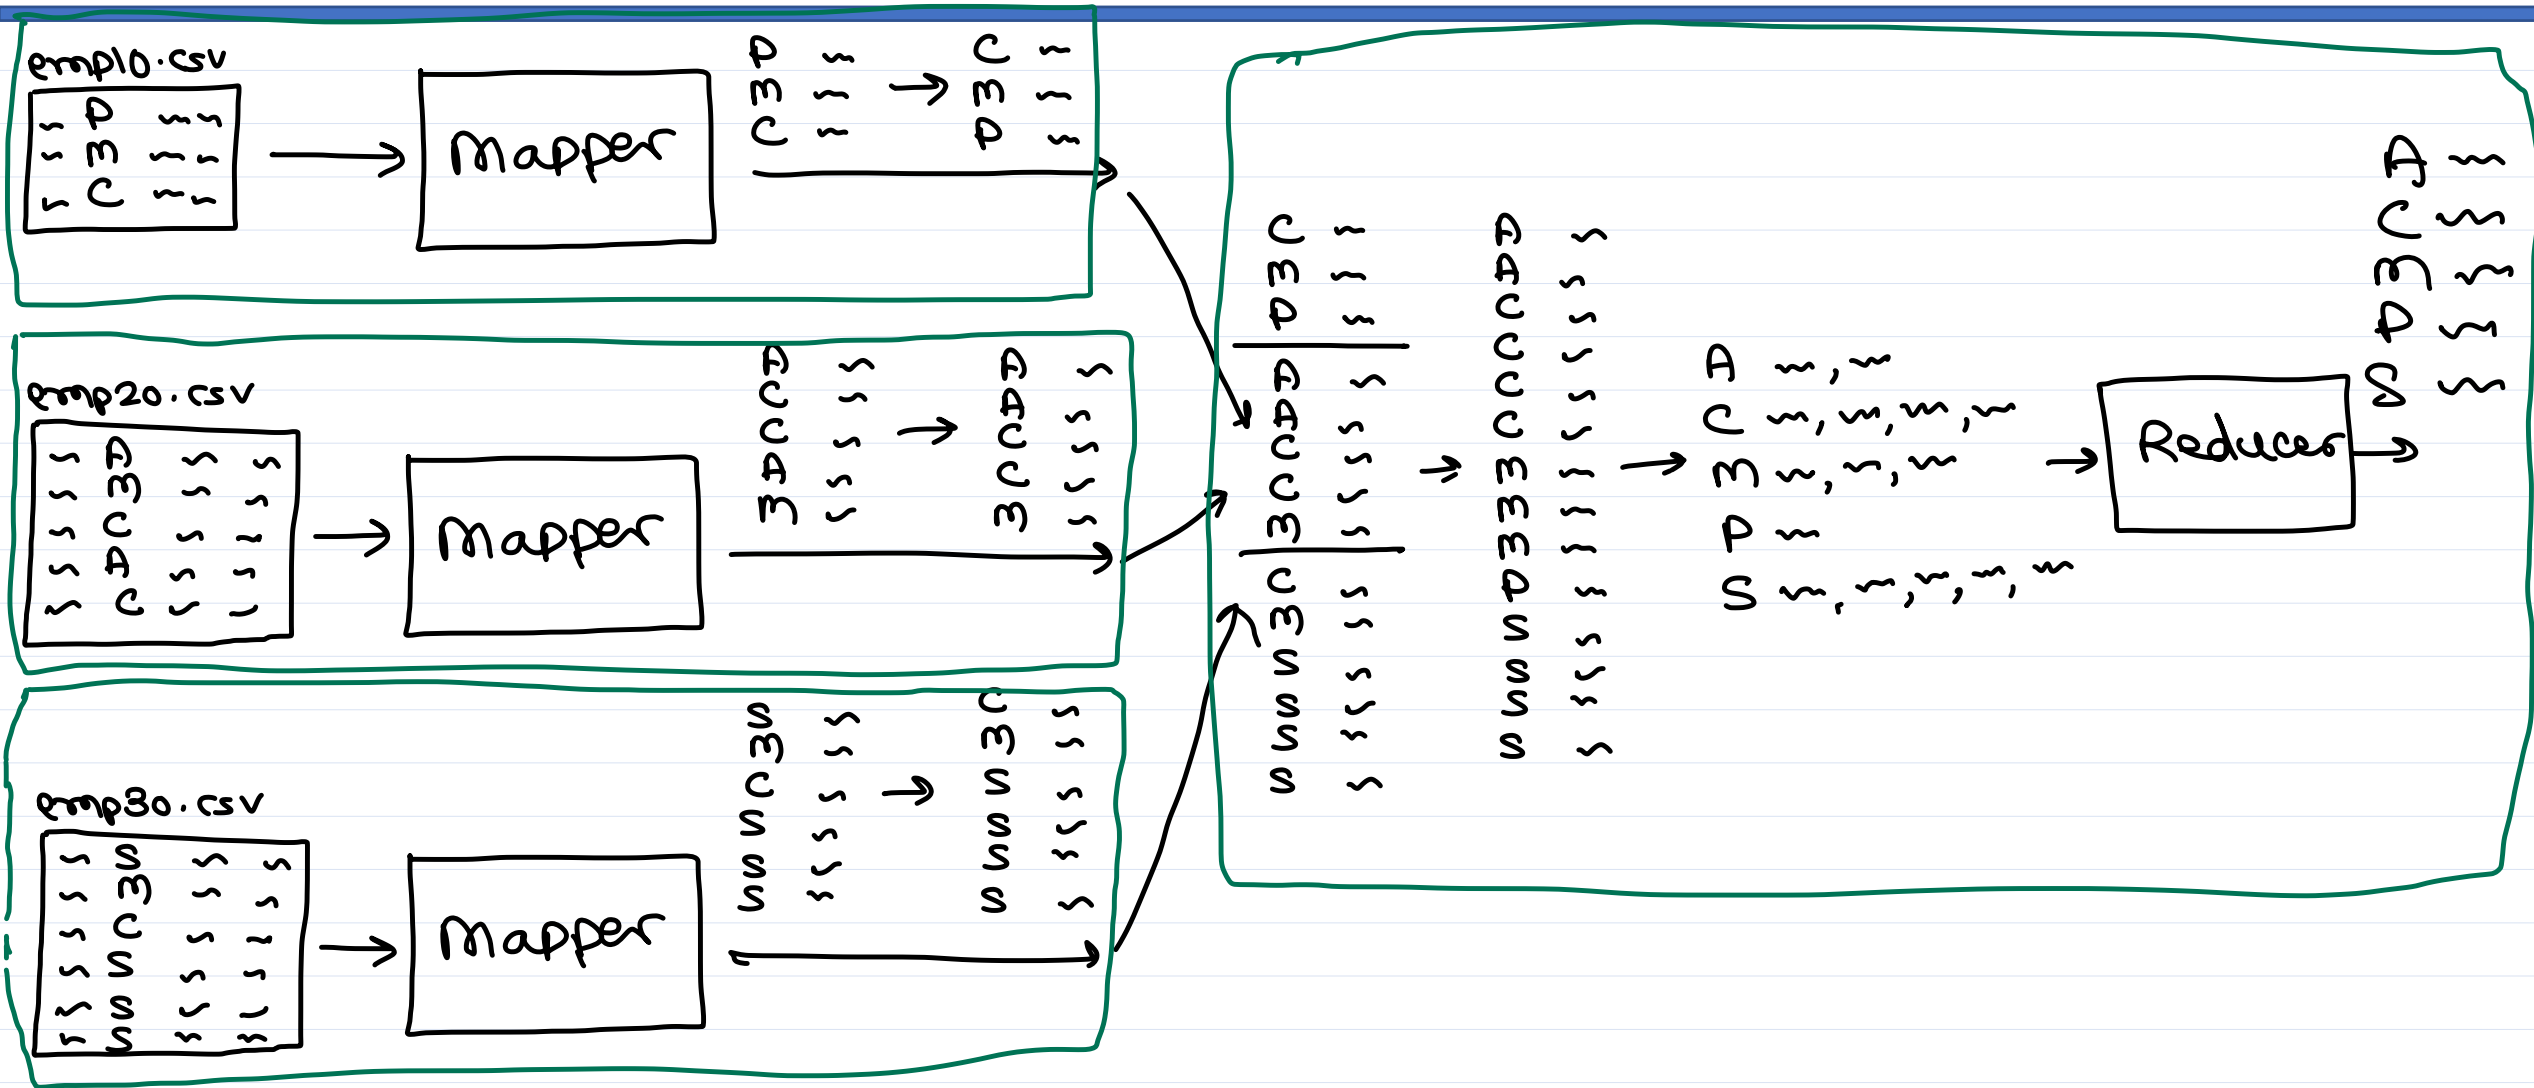 emp10.csv
P
M
C
Mapper
P
M
C
C
M
P
emp20.csv
A
M
C
A
C
Mapper
A
C
C
A
M
A
A
C
C
M
emp30.csv
S
M
C
S
S
S
Mapper
S
M
C
S
S
S
C
M
S
S
S
S
C
M
P
A
A
C
C
M
C
M
S
S
S
S
A
A
C
C
C
C
M
M
M
P
S
S
S
S
A ,
C , , ,
M , ,
P
S , , , ,
Reducer
A
C
M
P
S